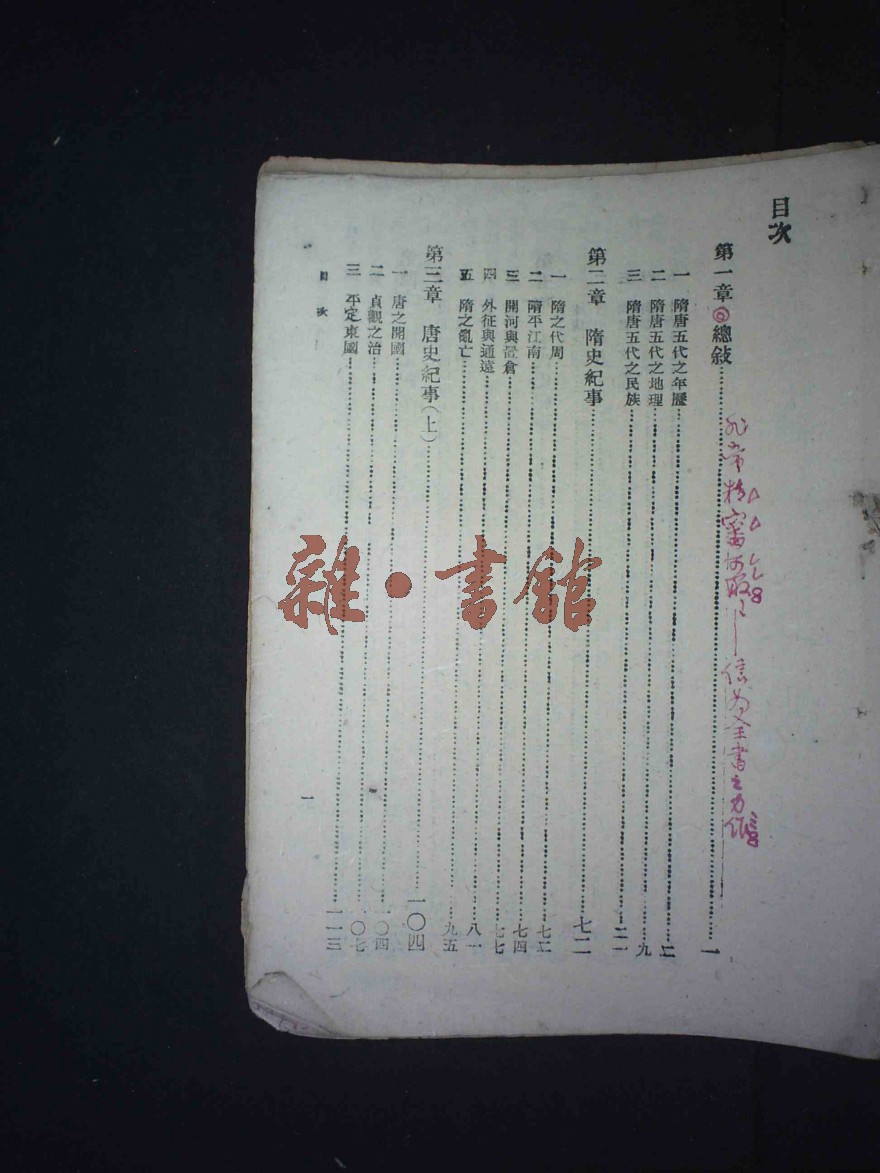 目次
第一章 總敍……一
一 隋唐五代之年歷……二
二 隋唐五代之地理……九
三 隋唐五代之民族……二一
第二章 隋史紀事……七二
一 隋之代周……七二
二 隋平江南……七四
三 開河與置倉……七七
四 外征與通遠……八一
五 隋之亂亡……九五
第三章 唐史紀事(上)……一〇四
一 唐之開國……一〇四
二 貞觀之治……一〇七
三 平定東國……一一三
目次
一
非常精審
信為全書之力作
雜·書館